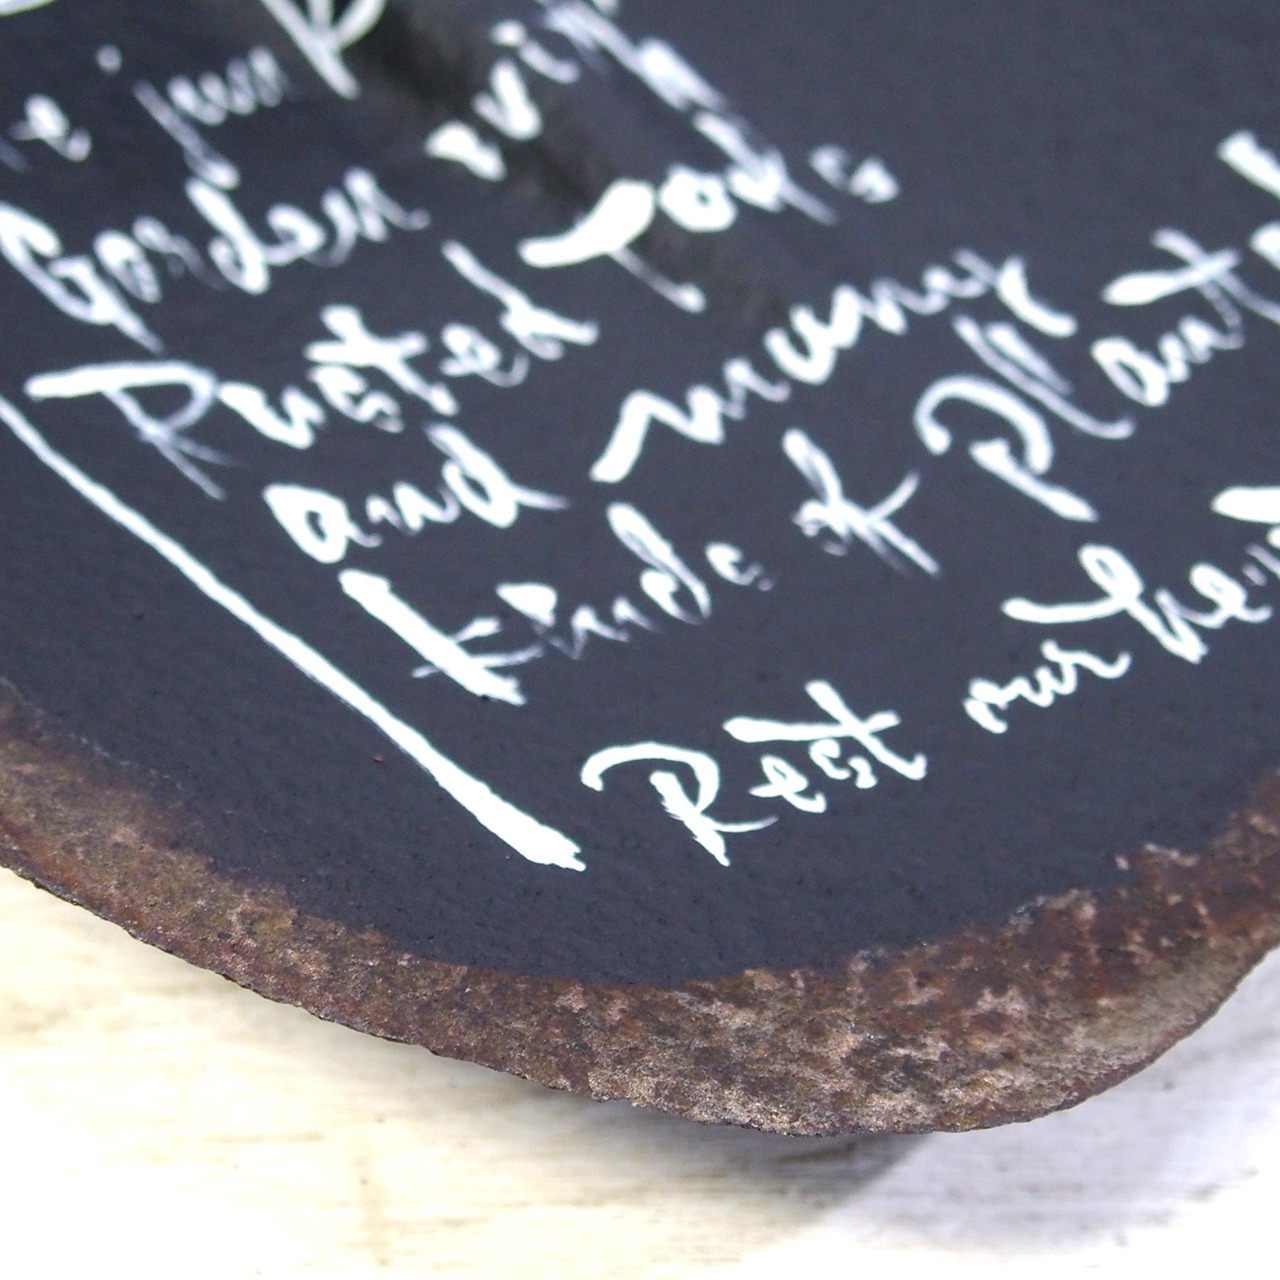 e junk
Garden with
Rusted Tools
and many
kinds of Plant
Rest our he